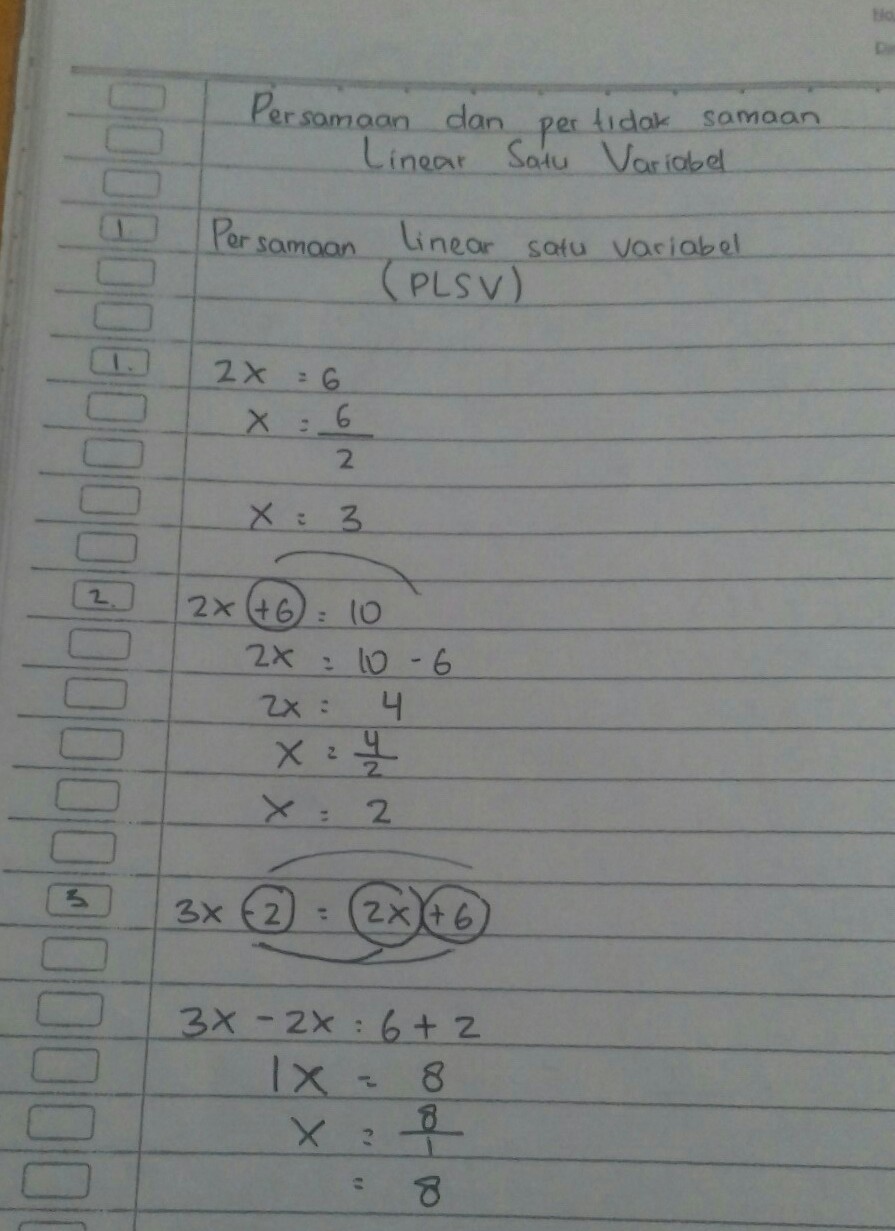 No
Da
Persamaan dan pertidak samaan
Linear Satu Variabel
1 Persamaan linear satu variabel
(PLSV)
1. 2x = 6
x = 6/2
x = 3
2. 2x +6 = 10
2x = 10 - 6
2x = 4
x = 4/2
x = 2
3 3x -2 = 2x +6
3x - 2x = 6 + 2
1x = 8
x = 8/1
= 8